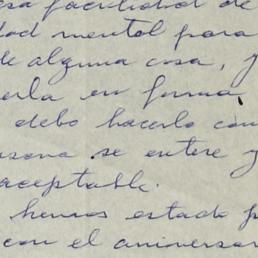 esa facilidad de
dad mental para
de alguna cosa, y
erla en forma
debo hacerlo con
sona se entere y
aceptable.
hemos estado p
con el aniversar